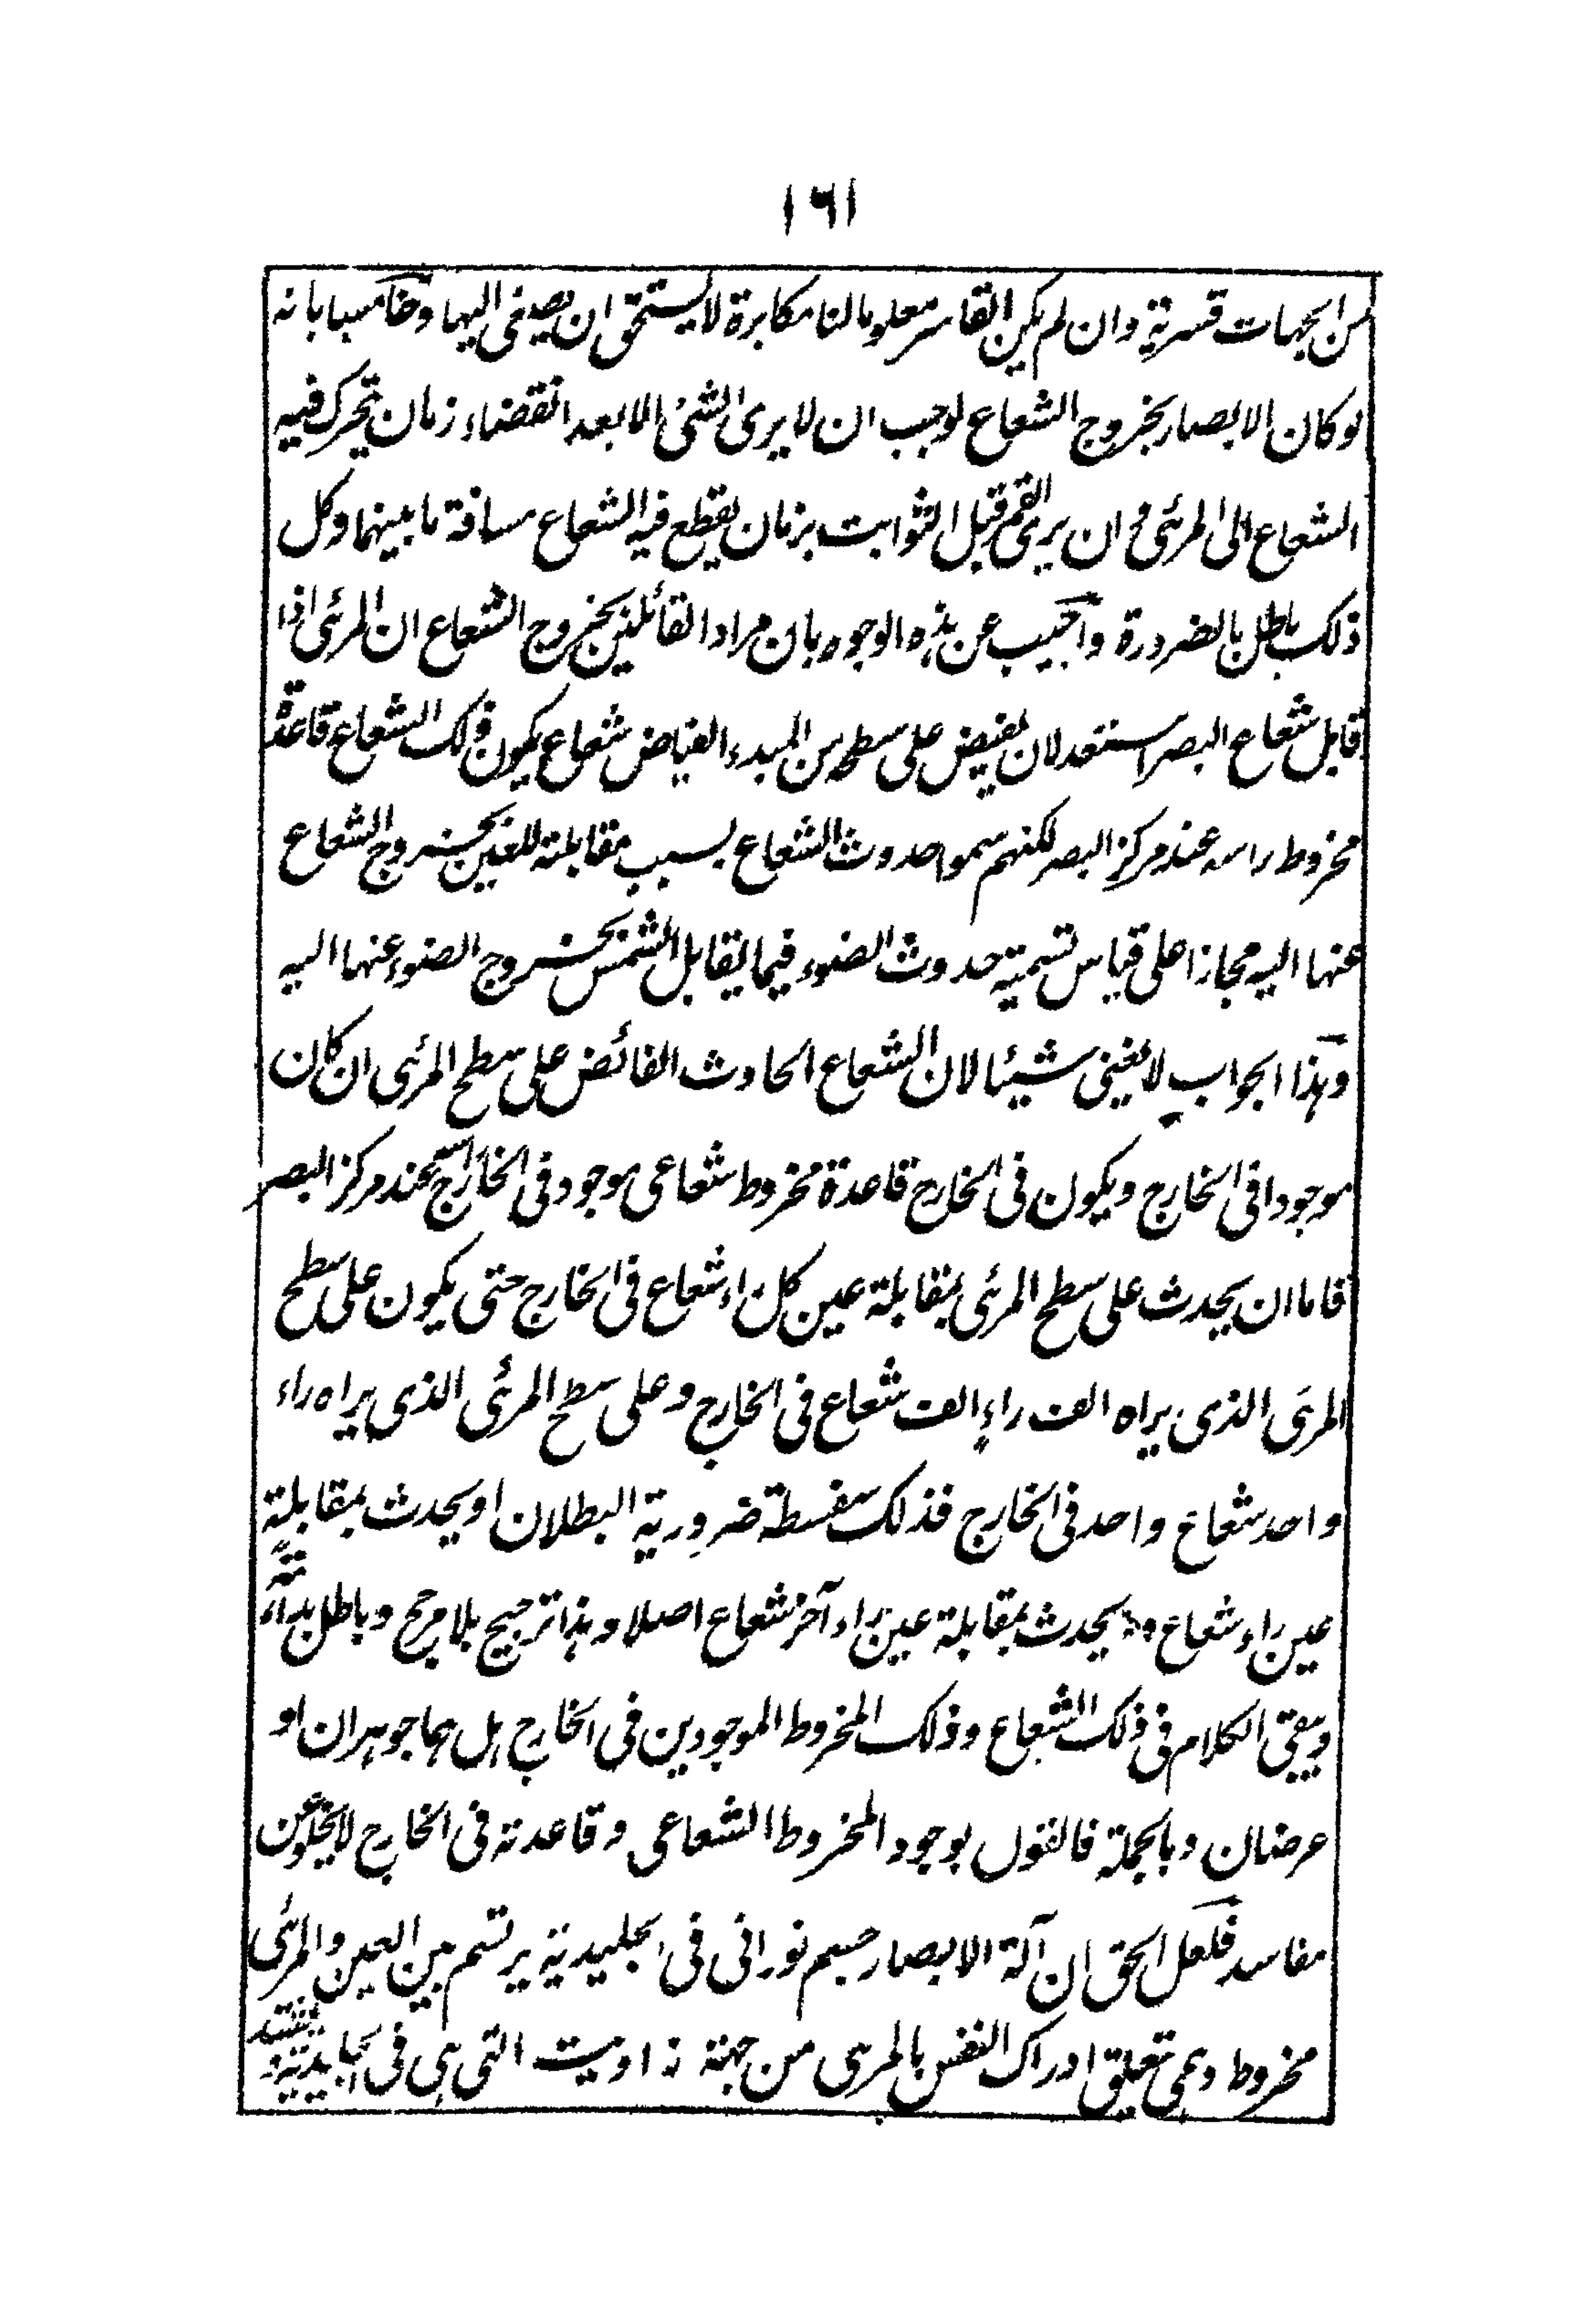 ١٦١
من الجهات قسرية وان لم يكن القاسر معلوما لنا مكابرة لا يستحق ان يصغى اليها وخامسا بانه
لو كان الابصار بخروج الشعاع لوجب ان لا يرى الشئ الا بعد انقضاء زمان يتحرك فيه
الشعاع الى المرئى و ان يرى القمر قبل الثوابت بزمان يقطع فيه الشعاع مسافة ما بينهما وكل
ذلك باطل بالضرورة واجيب عن هذه الوجوه بان مراد القائلين بخروج الشعاع ان المرئى اذا
قابل شعاع البصر استعد لان يفيض على سطحه من المبدء الفياض شعاع يكون ذلك الشعاع قاعدة
مخروط راسه عند مركز البصر لكنهم سموا حدوث الشعاع بسبب مقابلته للعين بخروج الشعاع
عنها اليه مجازا على قياس تسمية حدوث الضوء فيما يقابل الشمس بخروج الضوء عنها اليه
وهذا الجواب لا يغنى شيئا لان الشعاع الحادث الفائض على سطح المرئى ان كان
موجودا فى الخارج ويكون فى الخارج قاعدة مخروط شعاعى موجود فى الخارج راسه عند مركز البصر
فاما ان يحدث على سطح المرئى بمقابلة عين كل راء شعاع فى الخارج حتى يكون على سطح
المرئى الذى يراه الف راء الف شعاع فى الخارج وعلى سطح المرئى الذى يراه راء
واحد شعاع واحد فى الخارج فذلك سفسطة ضرورية البطلان او يحدث بمقابلة
عين راء شعاع ولا يحدث بمقابلة عين راء آخر شعاع اصلا وهذا ترجيح بلا مرجح وباطل بداهة
ويبقى الكلام فى ذلك الشعاع وذلك المخروط الموجودين فى الخارج هل هما جوهران او
عرضان وبالجملة فالقول بوجود المخروط الشعاعى وقاعدته فى الخارج لا يخلو عن
مفاسد فلعل الحق ان آلة الابصار جسم نورانى فى الجليدية يرتسم بين العين والمرئى
مخروط وهمى يتعلق ادراك النفس بالمرئى من جهة زاويته التى هى فى الجليدية